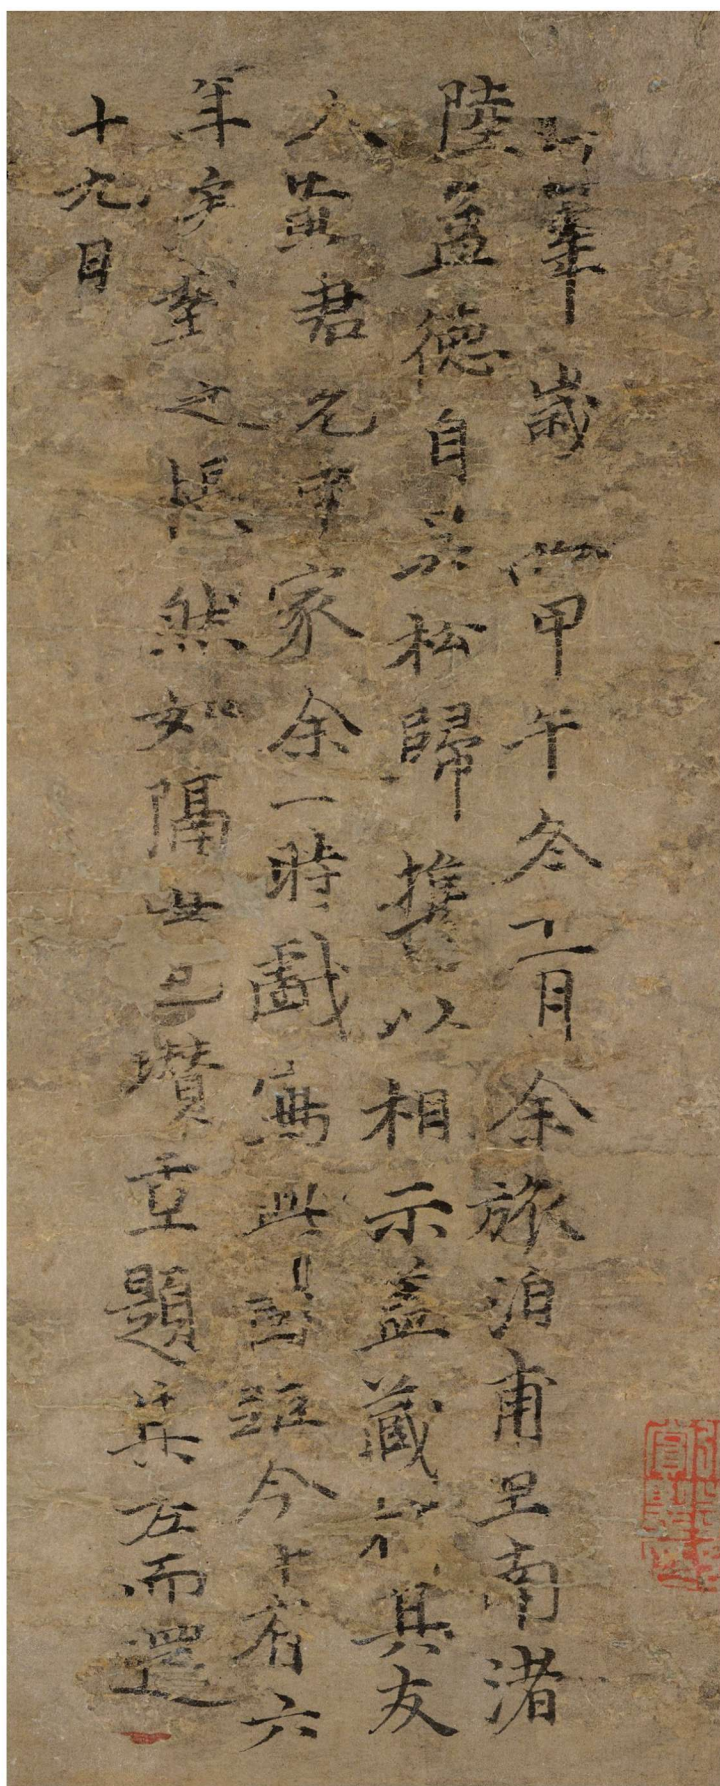 歲甲午冬十一月余旅泊甫里南渚
陸益德自吳松歸携以相示蓋藏於其友
人黃君允中家余一時戲寫此圖距今十有六
年矣對之悵然如隔世也瓚重題其左而還
十九日